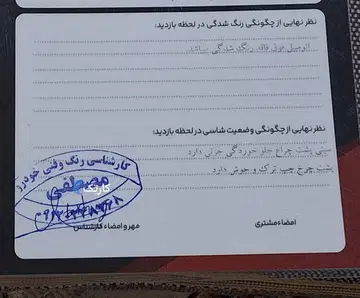 نظر نهایی از چگونگی رنگ شدگی در لحظه بازدید:
اتومبیل فوق فاقد رنگ شدگی میباشد
نظر نهایی از چگونگی وضعیت شاسی در لحظه بازدید:
سینی پشت چراغ جلو خوردگی جزئی دارد
پشت چرخ چپ ترک و جوش دارد
کارشناسی رنگ و فنی خودرو
مصطفی
کارنگ
امضاء مشتری
مهر و امضاء کارشناس